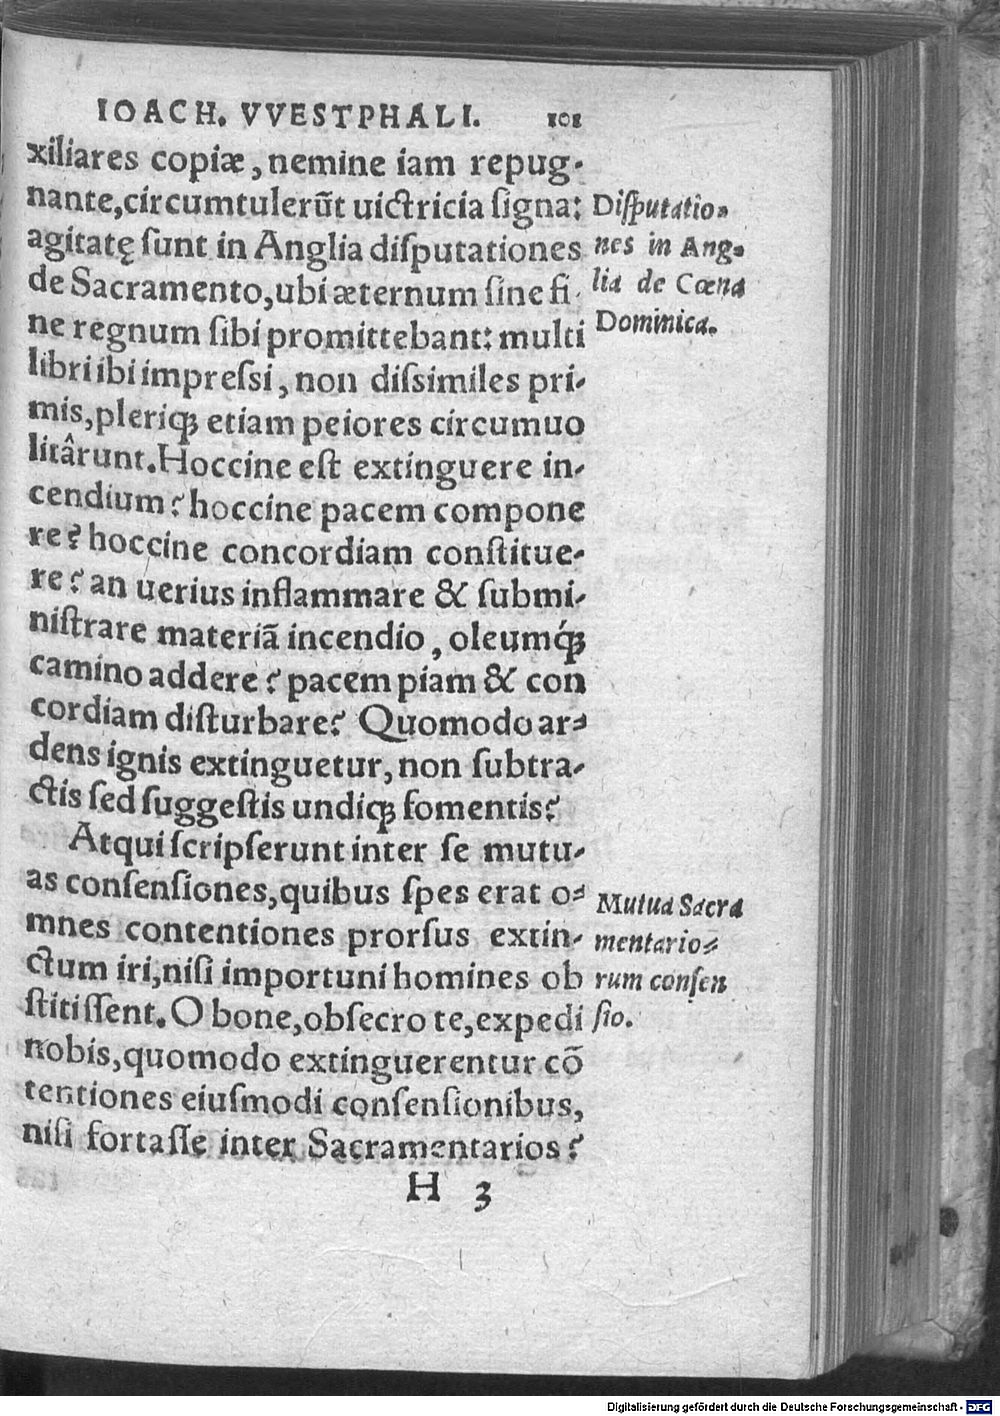 IOACH. VVESTPHALI. 101
xiliares copiæ, nemine iam repug-
nante, circumtulerūt uictricia signa:
agitatę sunt in Anglia disputationes
de Sacramento, ubi æternum sine fi
ne regnum sibi promittebant: multi
libri ibi impressi, non dissimiles pri-
mis, pleriq; etiam peiores circumuo
litârunt. Hoccine est extinguere in-
cendium? hoccine pacem compone
re? hoccine concordiam constitue-
re? an uerius inflammare & submi-
nistrare materiã incendio, oleumq́;
camino addere? pacem piam & con
cordiam disturbare? Quomodo ar-
dens ignis extinguetur, non subtra-
ctis sed suggestis undiq; fomentis?
Atqui scripserunt inter se mutu-
as consensiones, quibus spes erat o-
mnes contentiones prorsus extin-
ctum iri, nisi importuni homines ob
stitissent. O bone, obsecro te, expedi
nobis, quomodo extinguerentur cō
tentiones eiusmodi consensionibus,
nisi fortasse inter Sacramentarios?
H 3
Disputatio-
nes in Ang-
lia de Cœna
Dominica.
Mutua Sacra
mentario-
rum consen
sio.
Digitalisierung gefördert durch die Deutsche Forschungsgemeinschaft - DFG